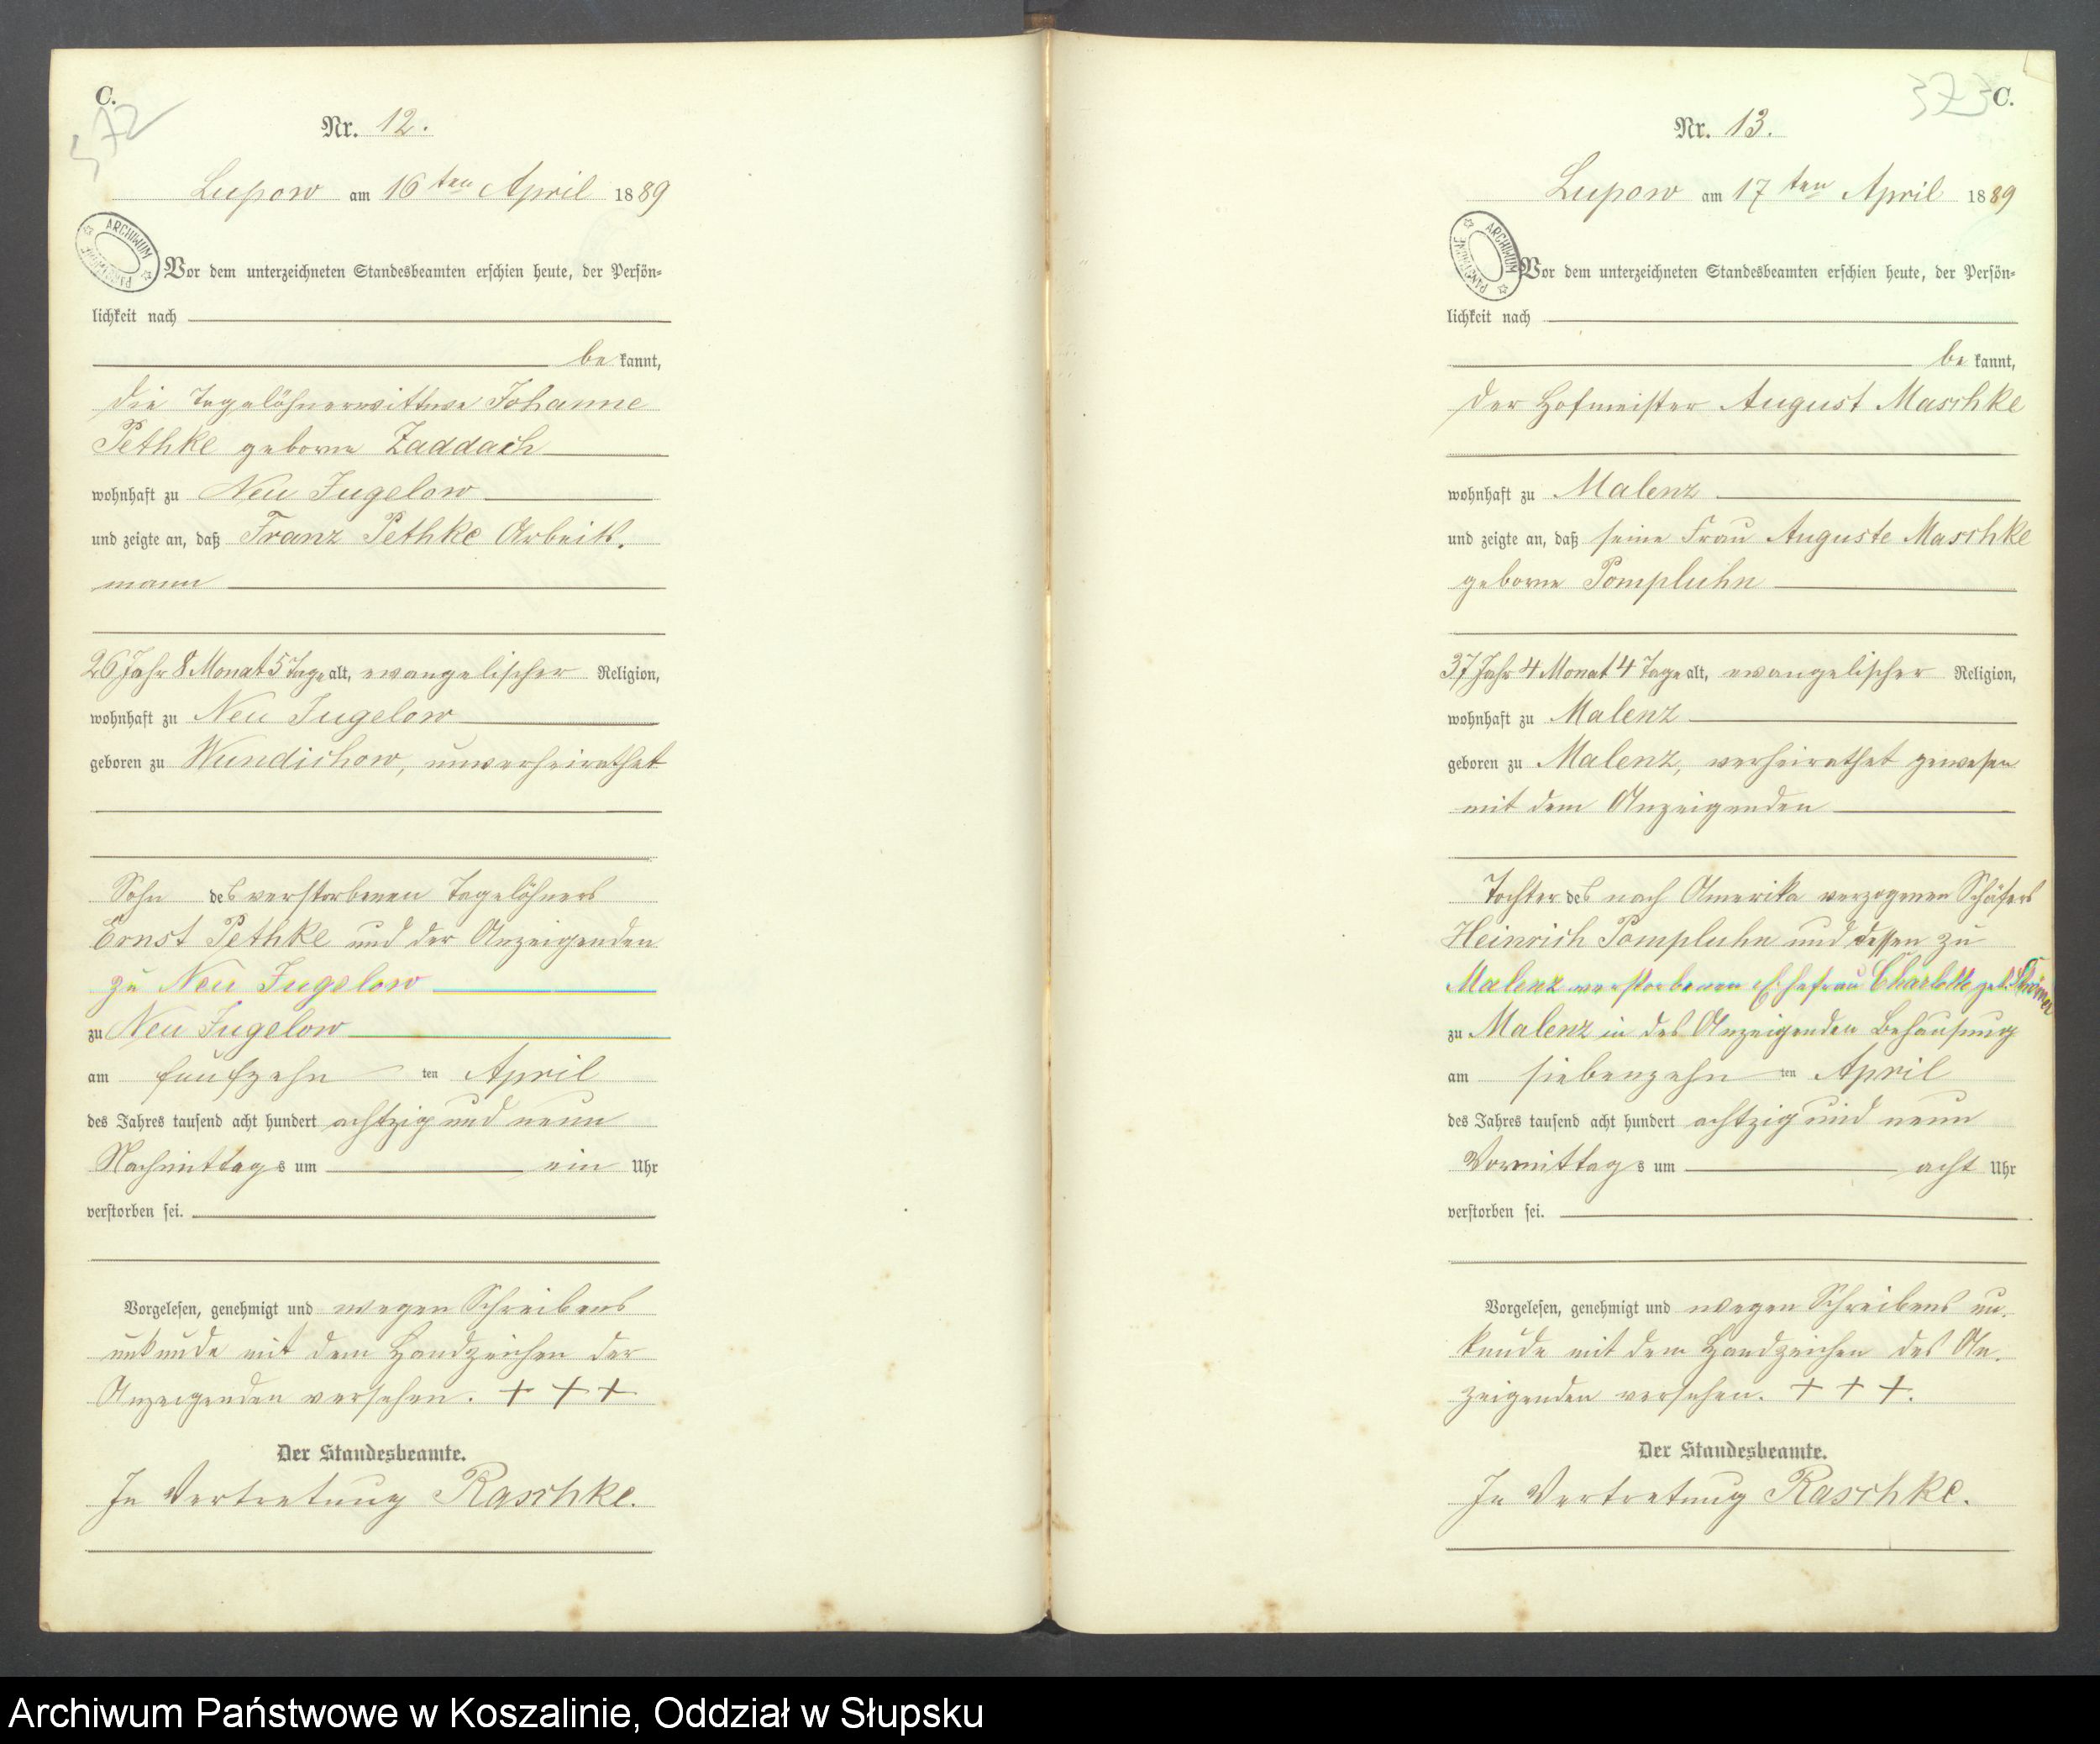 C.
372
Nr. 12.
Lupow am 16ten April 1889
ARCHIWUM PAŃSTWOWE
Vor dem unterzeichneten Standesbeamten erschien heute, der Persön-
lichkeit nach
be kannt,
die Tagelöhnerwittwe Johanne
Pethke geborne Zaddach
wohnhaft zu Neu Jugelow
und zeigte an, daß Franz Pethke Arbeits-
mann
26 Jahr 8 Monat 5 Tage alt, evangelischer Religion,
wohnhaft zu Neu Jugelow
geboren zu Wundichow, unverheirathet
Sohn des verstorbenen Tagelöhners
Ernst Pethke und der Anzeigenden
zu Neu Jugelow
zu Neu Jugelow
am fünfzehn ten April
des Jahres tausend acht hundert achtzig und neun
Nachmittags um ein Uhr
verstorben sei.
Vorgelesen, genehmigt und wegen Schreibens
unkunde mit dem Handzeichen der
Anzeigenden versehen. + + +
Der Standesbeamte.
In Vertretung Raschke.
373
C.
Nr. 13.
Lupow am 17ten April 1889
ARCHIWUM PAŃSTWOWE
Vor dem unterzeichneten Standesbeamten erschien heute, der Persön-
lichkeit nach
be kannt,
der Hofmeister August Maschke
wohnhaft zu Malenz
und zeigte an, daß seine Frau Auguste Maschke
geborne Pompluhn
37 Jahr 4 Monat 4 Tage alt, evangelischer Religion,
wohnhaft zu Malenz
geboren zu Malenz, verheirathet gewesen
mit dem Anzeigenden
Tochter des nach Amerika verzogenen Schäfers
Heinrich Pompluhn und dessen zu
Malenz verstorbenen Ehefrau Charlotte geb.
zu Malenz in des Anzeigenden Behausung
am siebenzehn ten April
des Jahres tausend acht hundert achtzig und neun
Vormittags um acht Uhr
verstorben sei.
Vorgelesen, genehmigt und wegen Schreibens un-
kunde mit dem Handzeichen des An-
zeigenden versehen. + + +.
Der Standesbeamte.
In Vertretung Raschke.
Archiwum Państwowe w Koszalinie, Oddział w Słupsku